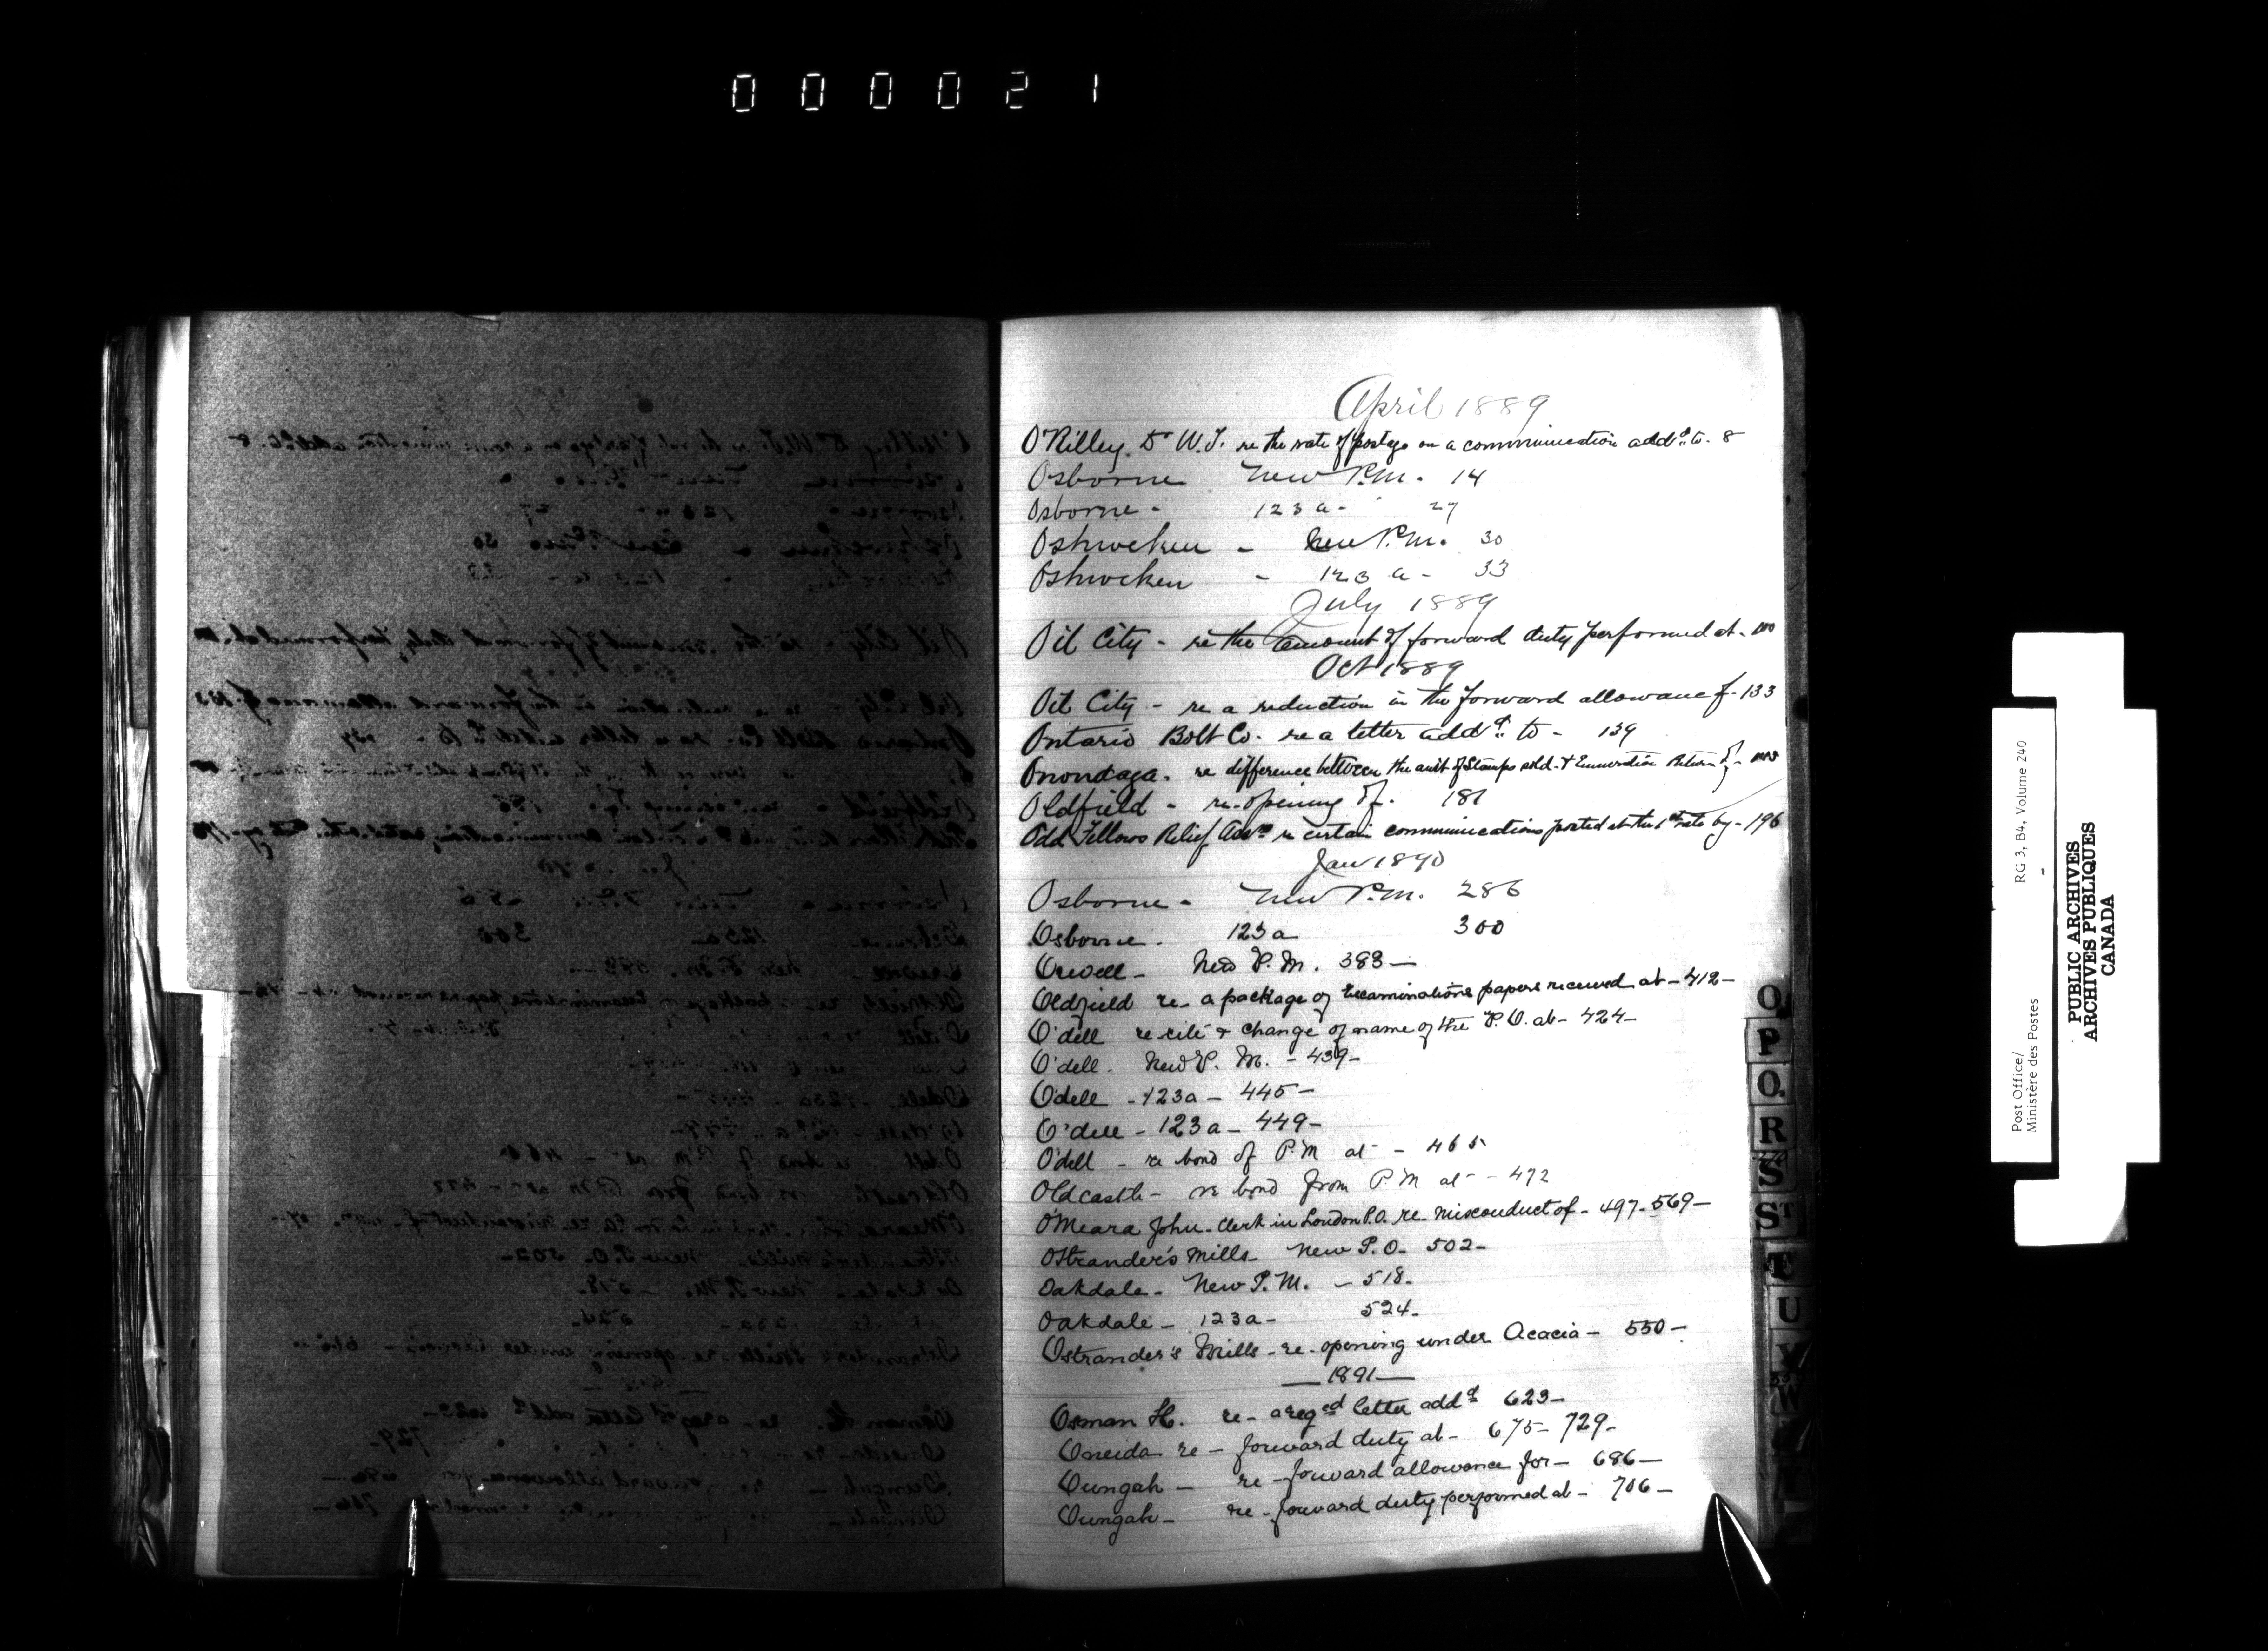 000021
April 1889
O'Rilley. Dr W.J. re the rate of postage on a communication addd to - 8
Osborne New P.M. 14
Osborne - 123a - 27
Oshweken - New P.M. 30
Oshweken - 123a - 33
July 1889
Oil City - re the amount of forward duty performed at - 100
Oct 1889
Oil City - re a reduction in the forward allowance of - 133
Ontario Bolt Co. re a letter addd to - 139
Onondaga. re difference between the amt of Stamps sold & Return of -
Oldfield - re-opening of. 181
Odd Fellows Relief Assn re certain communications posted at the 1ct rate by - 196
Jan 1890
Osborne - New P.M. 286
Osborne. 123a 300
Orwell - New P.M. 383 -
Oldfield re - a package of Examinations papers received at - 412 -
O'dell re site & change of name of the P.O. at - 424 -
O'dell. New P.M. - 439 -
Odell - 123a - 445 -
O'dell - 123a - 449 -
O'dell - re bond of P.M at - - 465
Oldcastle - re bond from P.M at - - 472
O'Meara John - Clerk in London P.O. re - misconduct of - 497 - 569 -
Ostrander's Mills - New P.O. - 502 -
Oakdale - New P.M. - 518 -
Oakdale - 123a - 524 -
Ostrander's Mills - re-opening under Acacia - 550 -
- 1891 -
Osman H. re - a reged letter addd 623 -
Oneida re - forward duty at - 675 - 729 -
Oungah - re - forward allowance for - 686 -
Oungah - re - forward duty performed at - 706 -
O
P
Q
R
S
ST
T
U
V
W
Y
Post Office/
Ministère des Postes
RG 3, B4, Volume 240
PUBLIC ARCHIVES
ARCHIVES PUBLIQUES
CANADA